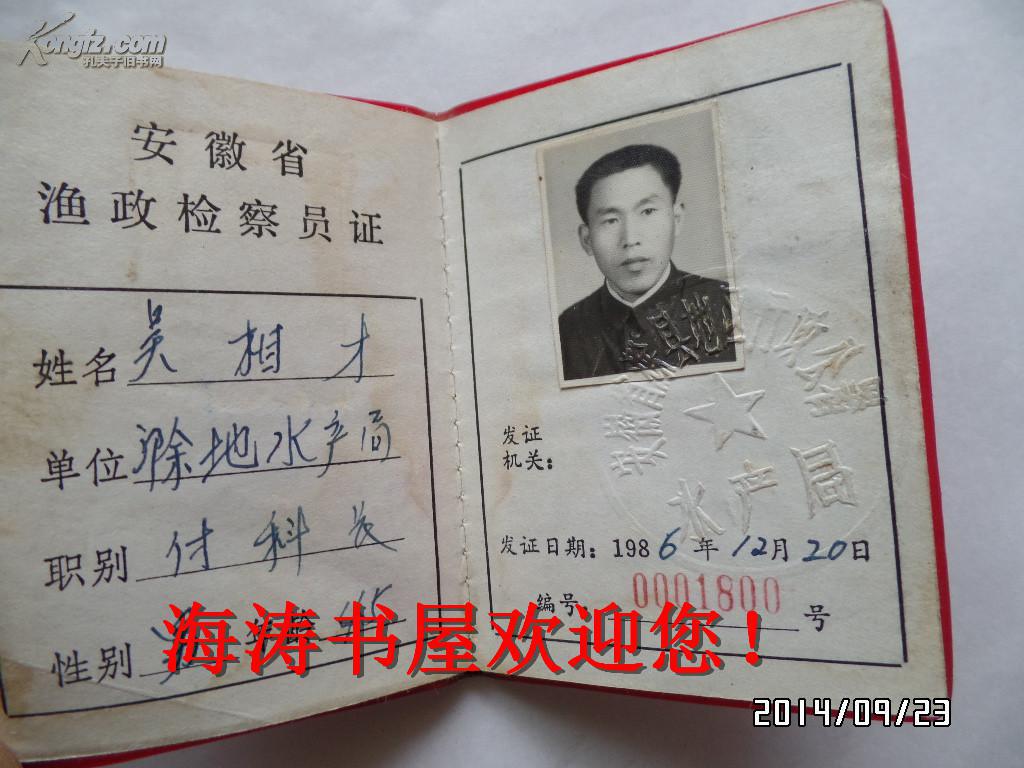 Kongfz.com
孔夫子旧书网
安徽省
渔政检察员证
姓名 吴相才
单位 滁地水产局
职别 付科长
性别 男 年龄 45
发证
机关:
水产局
发证日期: 1986年12月20日
编号 0001800 号
海涛书屋欢迎您!
2014/09/23